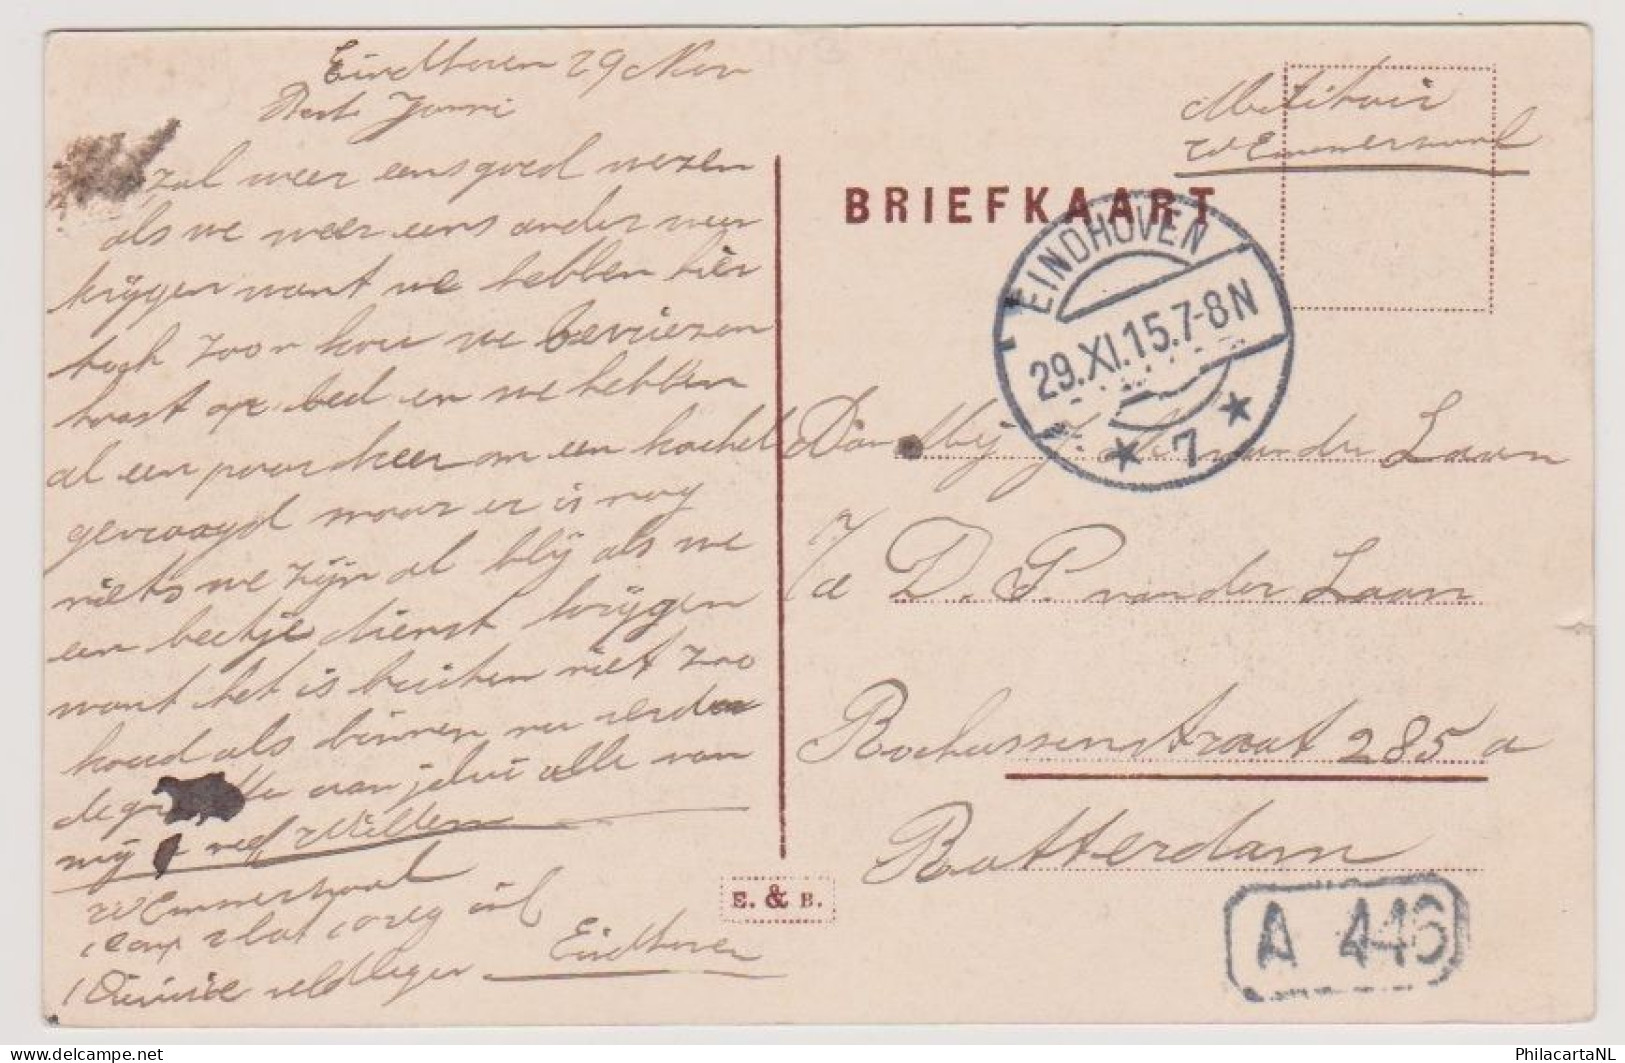 Eindhoven 29 Nov
zal weer eens goed wezen
als we weer eens ander weer
krijgen want we hebben hier
toch zoo'n kou we bevriezen
haast op bed en we hebben
al een paar keer om een kachel
gevraagd maar er is nog
niets we zijn al blij als we
een beetje dienst krijgen
want het is buiten niet zoo
koud als binnen nu verder
de gr te aan jelui alle van
mij Willem
W Emmersaal
Eindhoven
Militair
W Emmersaal
BRIEFKAART
EINDHOVEN
29.XI.15.7-8N
7
Mej J. van der Laan
D. P. van der Laan
Rochussenstraat 285 a
Rotterdam
E. & B.
A 446
delcampe.net
PhilacartaNL